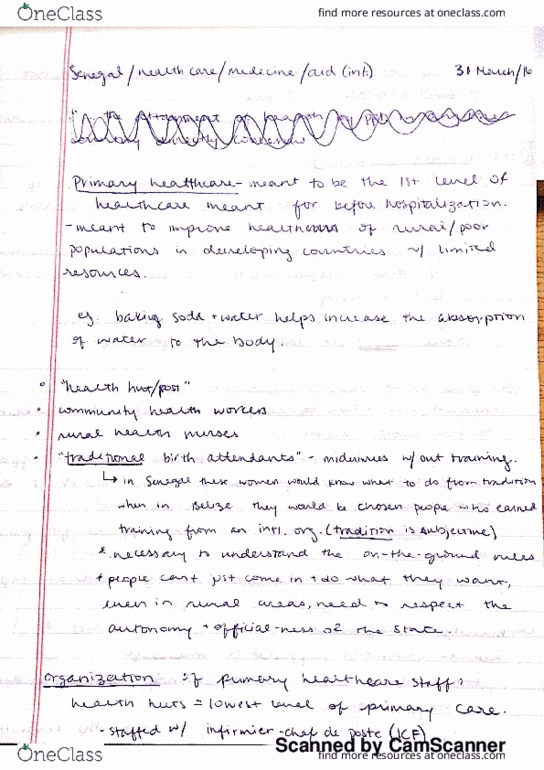 OneClass
find more resources at oneclass.com
Senegal/health care/medicine/aid (int.) 31 March/16
Primary healthcare - meant to be the 1st level of
healthcare meant for before hospitalization.
- meant to improve of rural/poor
populations in developing countries w/ limited
resources.
eg. baking soda + water helps increase the absorption
of water to the body.
"health hut/post"
community health workers
rural health nurses
"traditional birth attendants" - midwives w/out training.
↳ in Senegal these women would know what to do from tradition
when in Belize they would be chosen people who earned
training from an intl. org. (tradition is subjective)
* necessary to understand the on-the-ground rules
+ people can't just come in + do what they want,
even in rural areas, need to respect the
autonomy + official-ness of the state.
Organization of primary healthcare staff:
health huts = lowest level of primary care.
- staffed w/ infirmier-chef de poste (ICF)
Scanned by CamScanner
OneClass
find more resources at oneclass.com